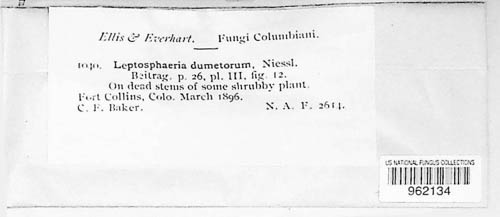 Ellis & Everhart. Fungi Columbiani.
1040. Leptosphaeria dumetorum, Niessl.
Beitrag. p. 26, pl. III, fig. 12.
On dead stems of some shrubby plant.
Fort Collins, Colo. March 1896.
C. F. Baker. N. A. F. 2614.
US NATIONAL FUNGUS COLLECTIONS
962134